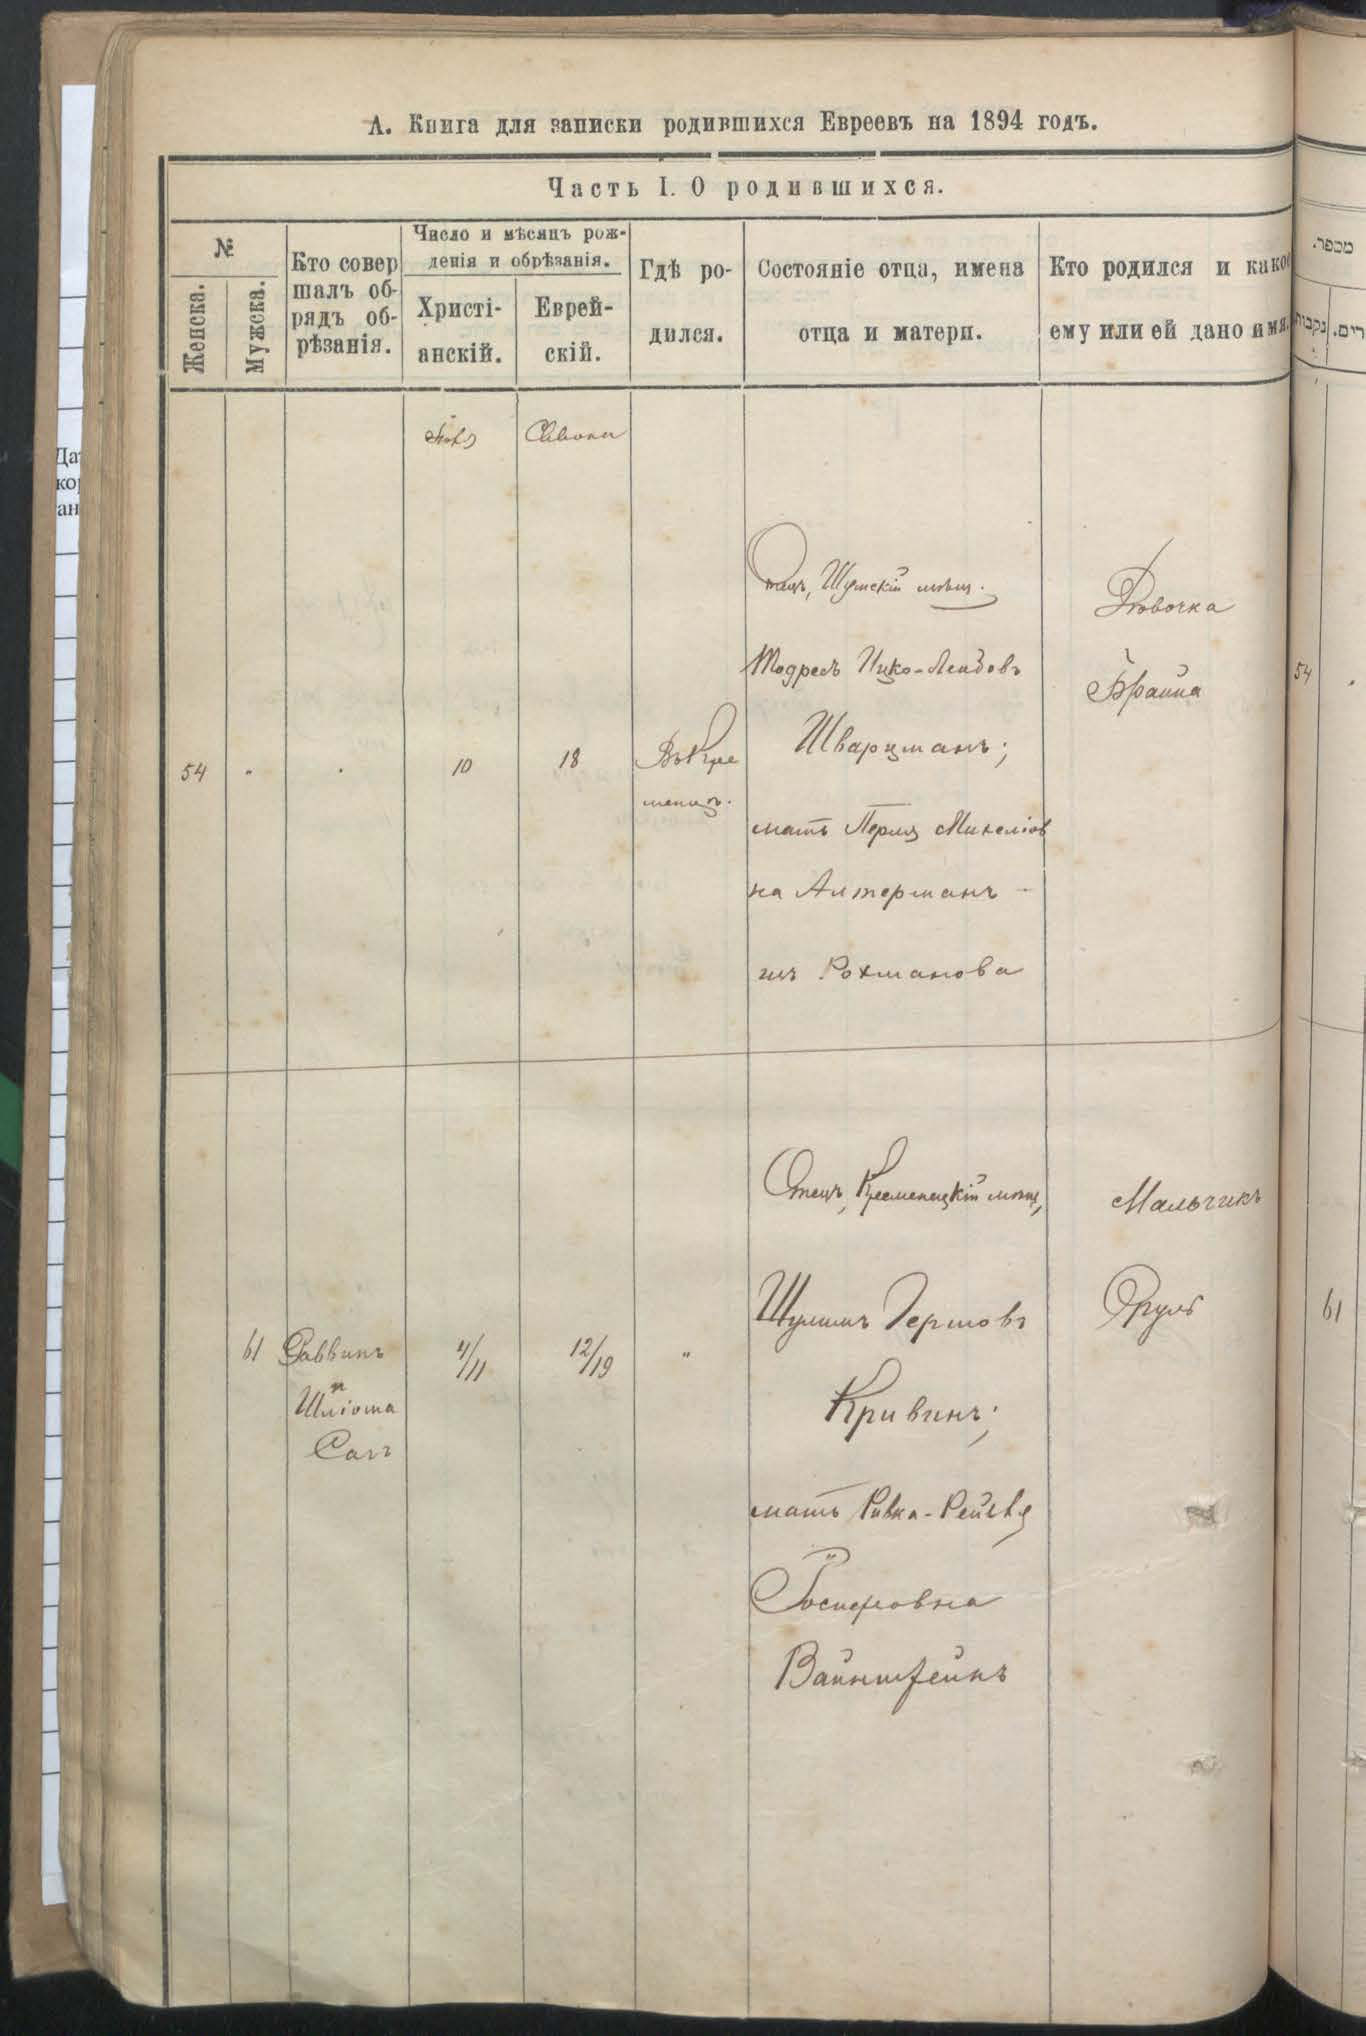 А. Книга для записки родившихся Евреевъ на 1894 годъ.
Часть I. О родившихся.
№
Женска.
Мужска.
Кто совер
шалъ об-
рядъ об-
рѣзанія.
Число и мѣсяцъ рож-
денія и обрѣзанія.
Христі-
анскій.
Еврей-
скій.
Гдѣ ро-
дился.
Состояніе отца, имена
отца и матери.
Кто родился и какое
ему или ей дано имя.
54
10
18
Въ Кре
менцѣ.
Отецъ, Шумскій мѣщ.
Тодресъ Ицко-Лейбовъ
Шварцманъ;
мать Перля Михеліов
на Алтерманъ -
изъ Рохманова
Дѣвочка
Брайна
61
Раввинъ
и
Шліома
Сас
4/11
12/19
"
Отецъ, Кременецкій мѣщ,
Шулимъ Гершовъ
Кривинъ;
мать Ривка-Рейзля
Іосифовна
Вайнштейнъ
Мальчикъ
Сруль
מספר.
נקבות
רים.
54
61
Дат
кор
ан